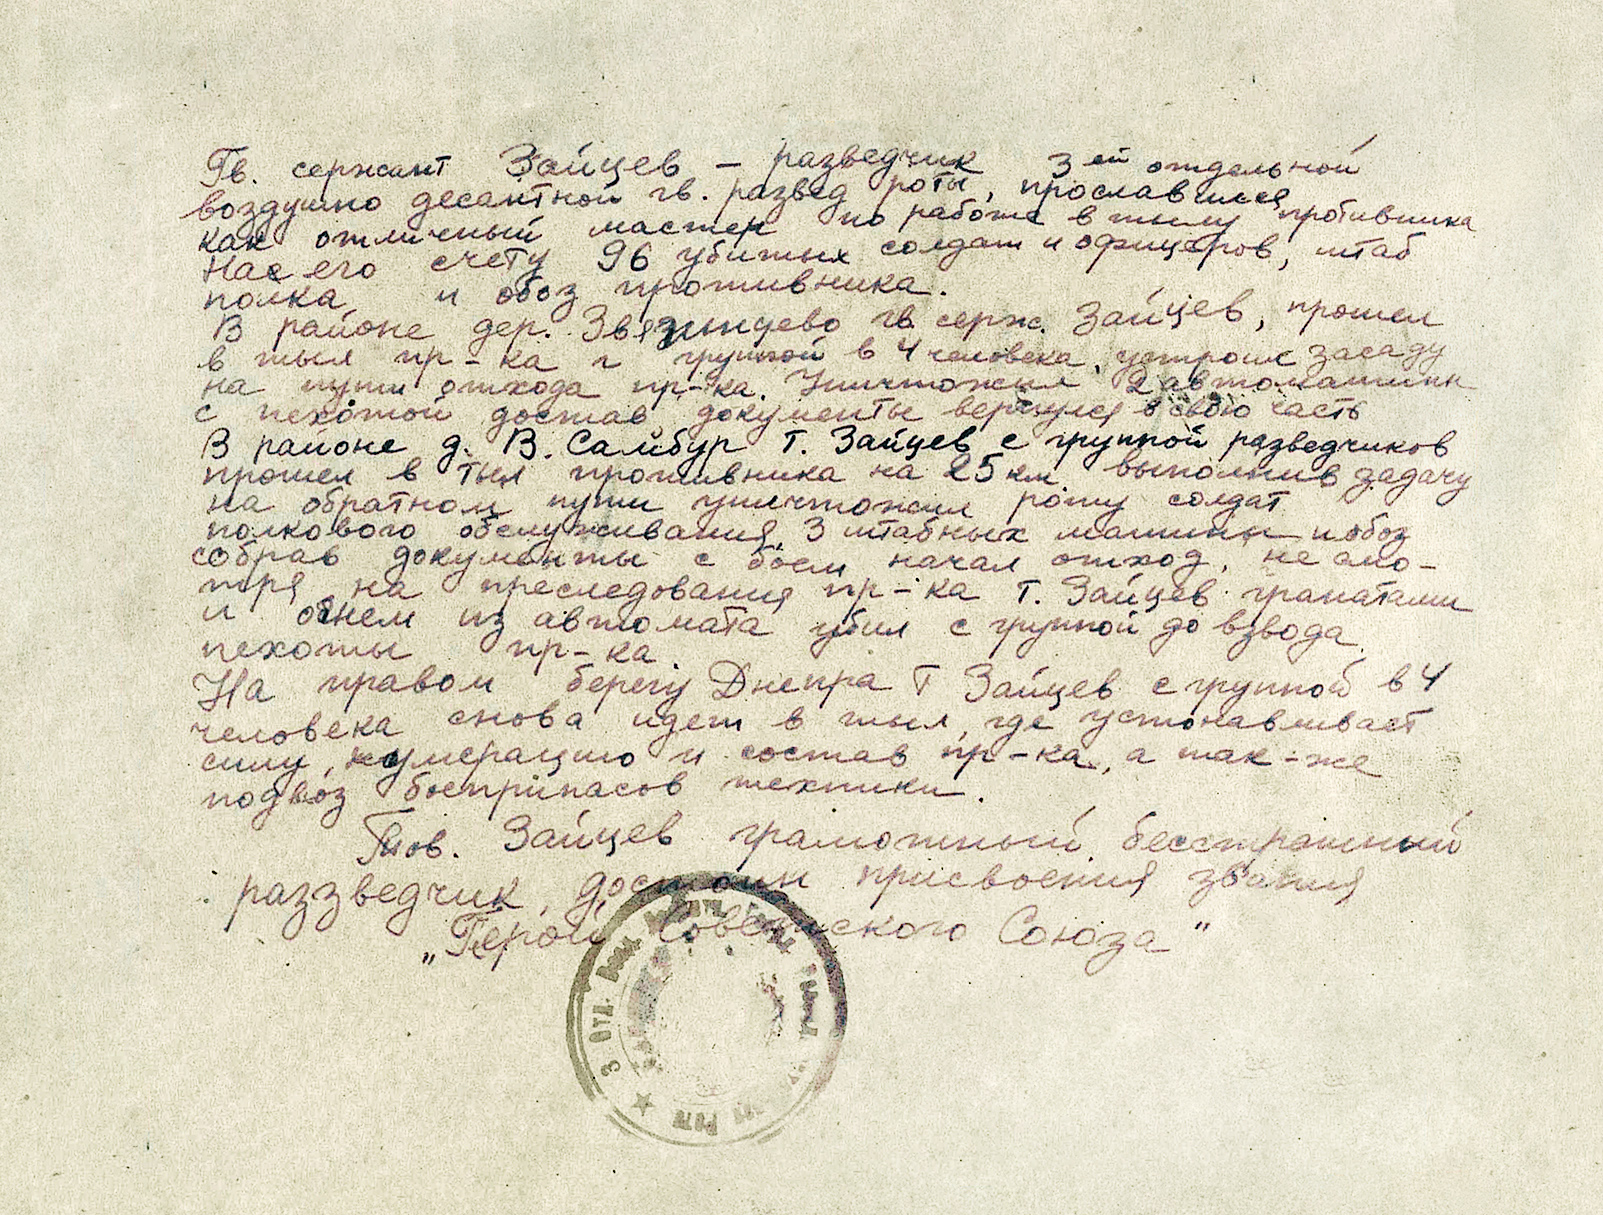 Гв. сержант Зайцев – разведчик 3ей отдельной
воздушно десантной гв. развед роты, прославился
как отличный мастер по работе в тылу противника
На его счету 96 убитых солдат и офицеров, штаб
полка и обоз противника.
В районе дер. гв. серж. Зайцев, прошел
в тыл пр-ка с группой в 4 человека, устроил засаду
на пути отхода пр-ка. Уничтожил 2 автомашины
с пехотой достав документы вернулся в свою часть
В районе д. В. Самбур т. Зайцев с группой разведчиков
прошел в тыл противника на 25 км выполнив задачу
на обратном пути уничтожил роту солдат
полкового обслуживания, 3 штабных машины и обоз
собрав документы с боем начал отход, не смо-
тря на преследования пр-ка т. Зайцев гранатами
и огнем из автомата убил с группой до взвода
пехоты пр-ка.
На правом берегу Днепра т Зайцев с группой в 4
человека снова идет в тыл, где устонавливает
силу, нумерацию и состав пр-ка, а так-же
подвоз боеприпасов техники.
Тов. Зайцев грамотный, бесстрашный
раззведчик, достоин присвоения звания
„Герой Советского Союза"
3 Отд. Возд.